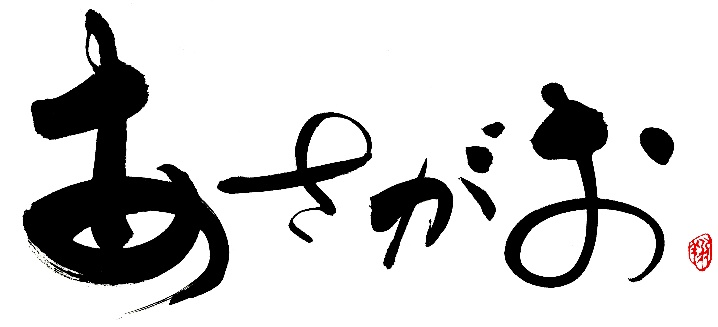 あさがお
翔